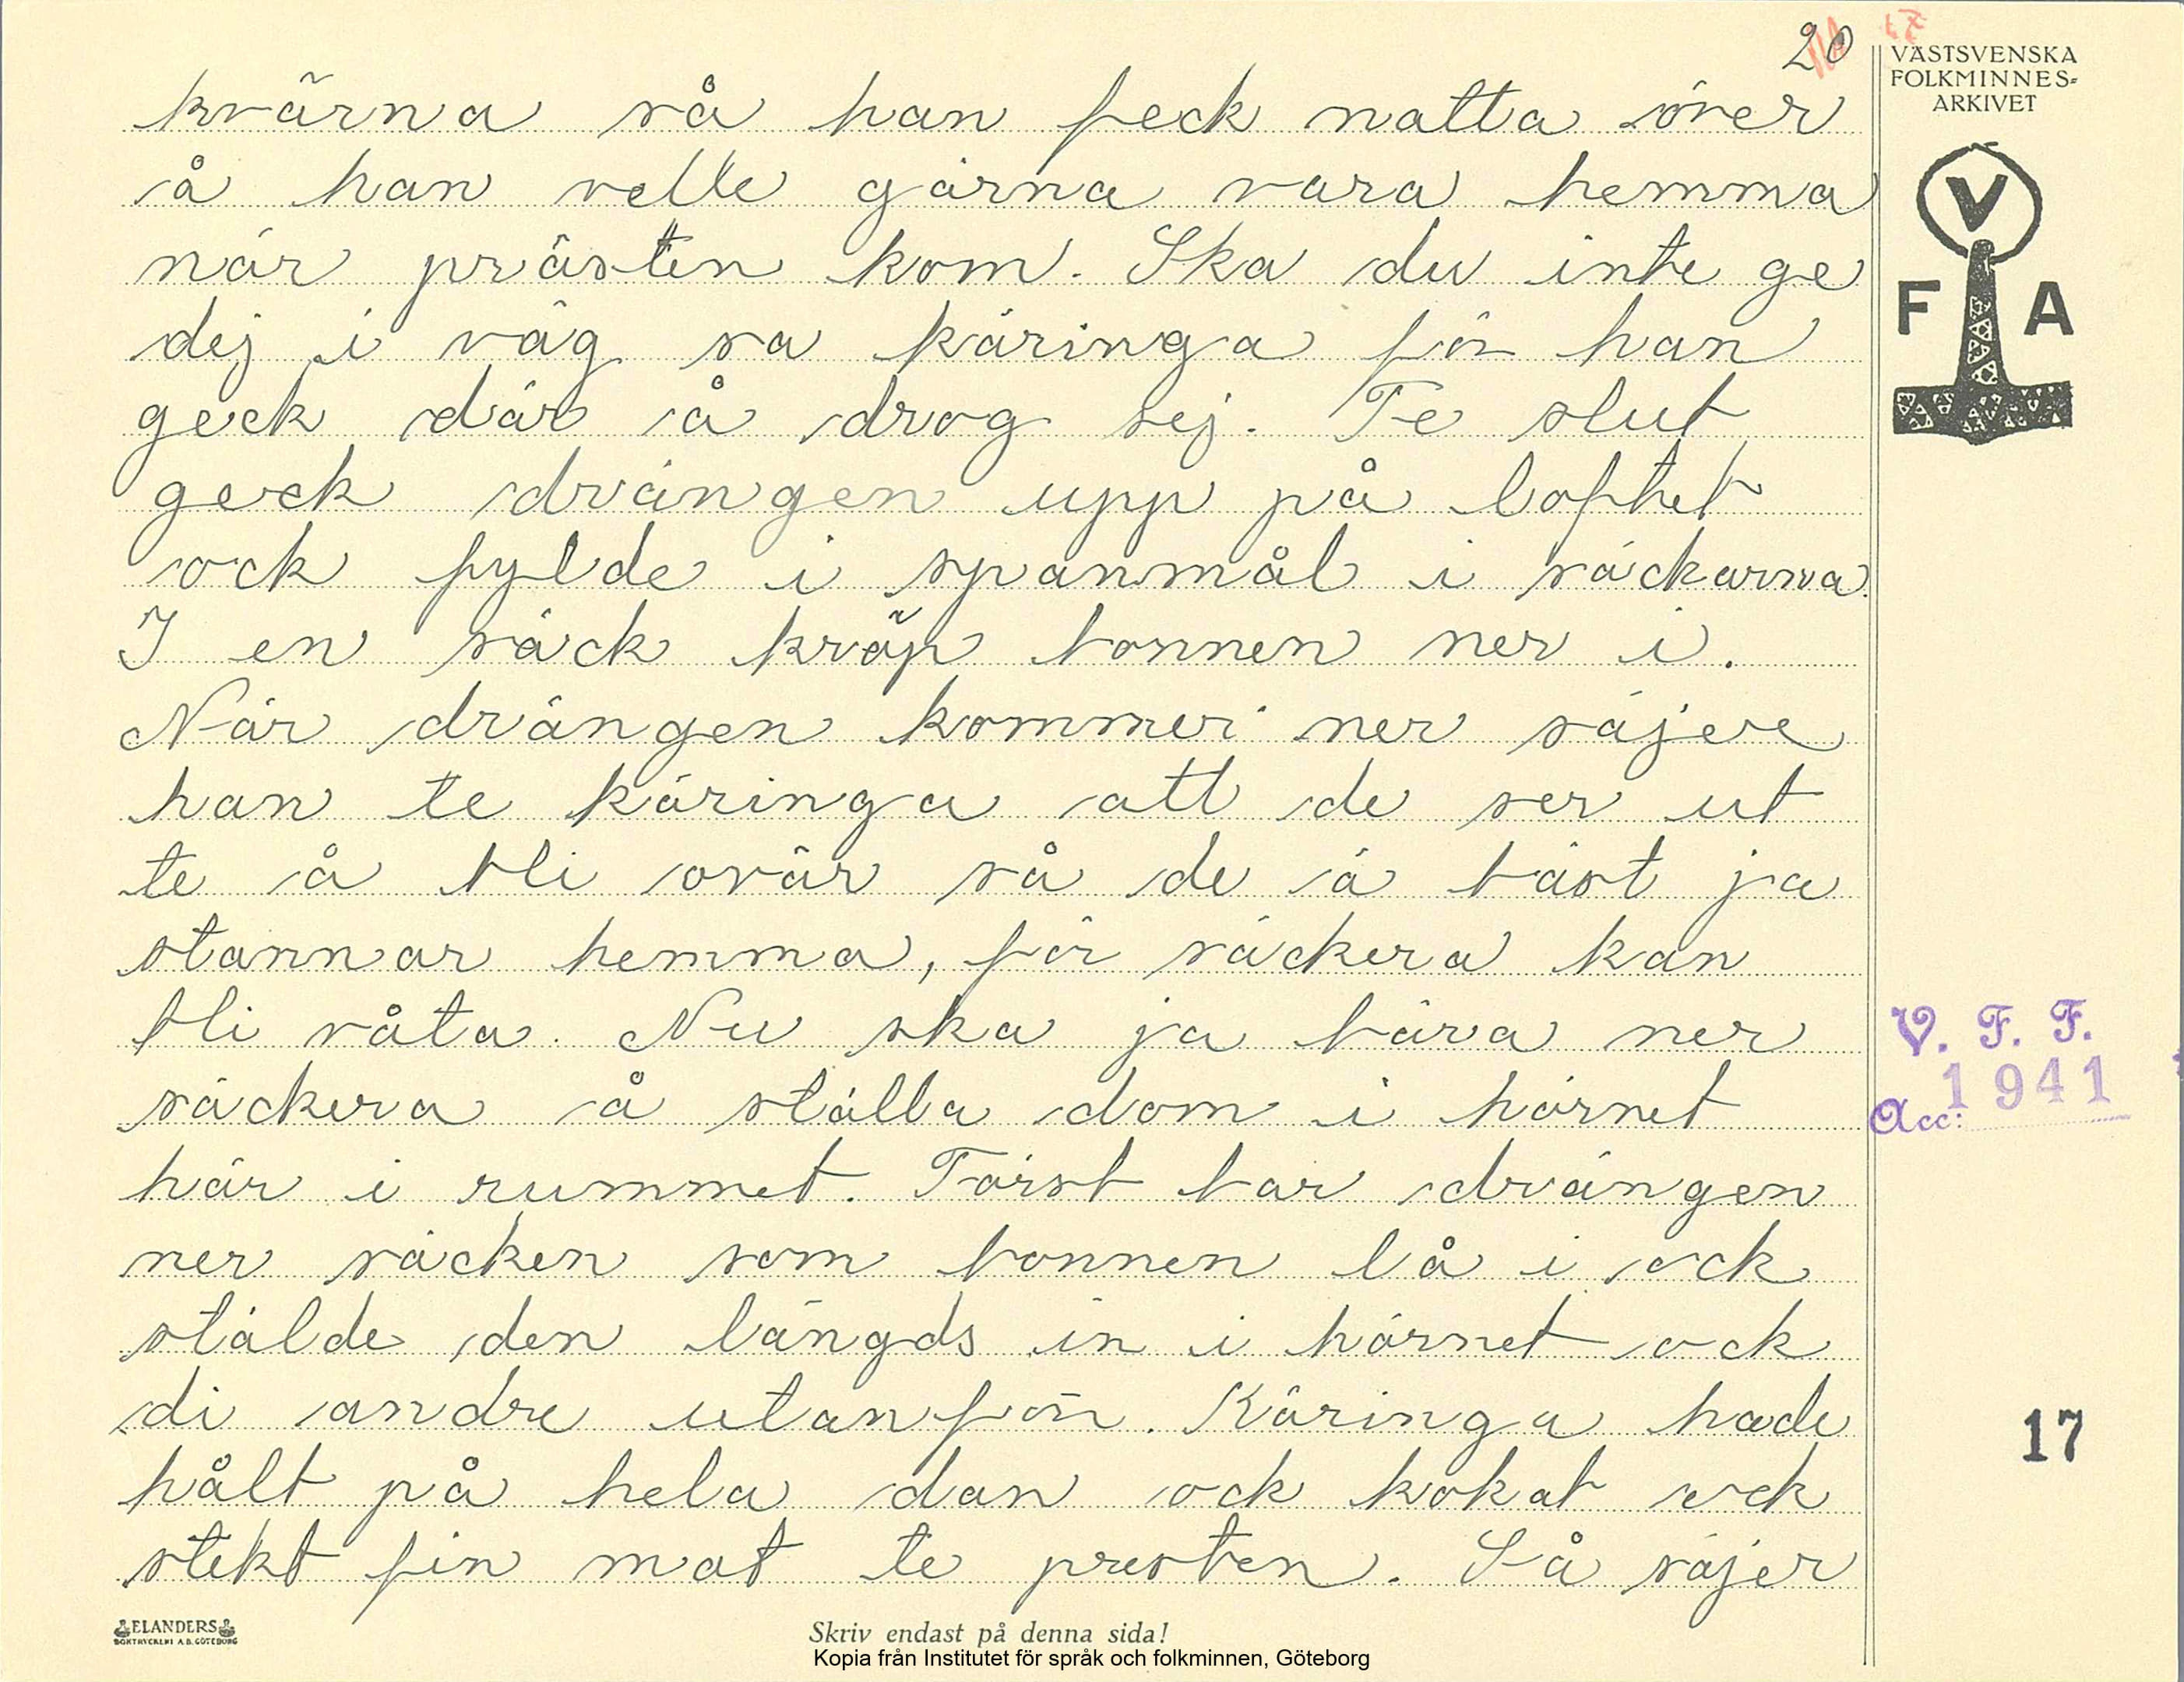 20
VÄSTSVENSKA
FOLKMINNES-
ARKIVET
V
F A
kvärna så han feck natta över
å han velle gärna vara hemma
när prästen kom. Ska du inte ge
dej i väg sa käringa för han
geck där å drog sej. Te slut
geck drängen upp på lofthet
ock fylde i spanmål i säckarna.
I en säck kröp bonnen ner i.
När drängen kommer ner säjer
han te käringa att de ser ut
te å bli ovär så de ä bäst ja
stannar hemma, för säckera kan
bli våta. Nu ska ja bära ner
säckera å ställa dom i hörnet
här i rummet. Först bar drängen
ner säcken som bonnen lå i ock
stälde den längds in i hörnet ock
di andre utanför. Käringa hade
hålt på hela dan ock kokat ock
stekt fin mat te presten. Så säjer
V. F. F.
1941
Acc:
17
ELANDERS
BOKTRYCKERI A.B. GÖTEBORG
Skriv endast på denna sida!
Kopia från Institutet för språk och folkminnen, Göteborg